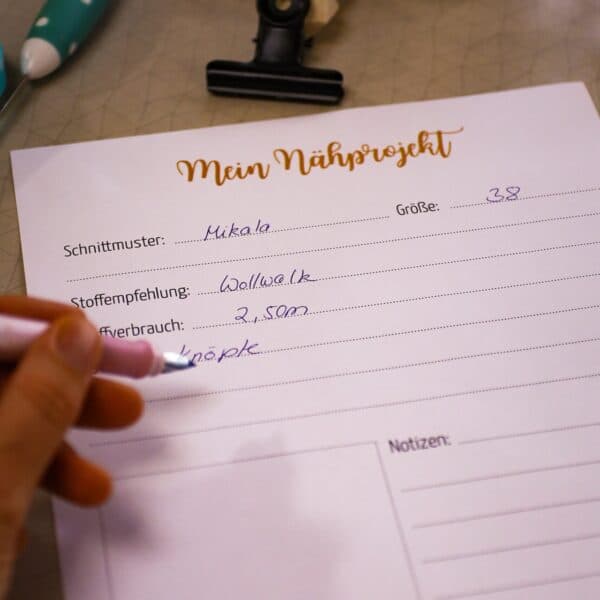 Mein Nähprojekt
Schnittmuster: Mikala Größe: 38
Stoffempfehlung: Wollwalk
ffverbrauch: 2,50m
Knöpfe
Notizen: